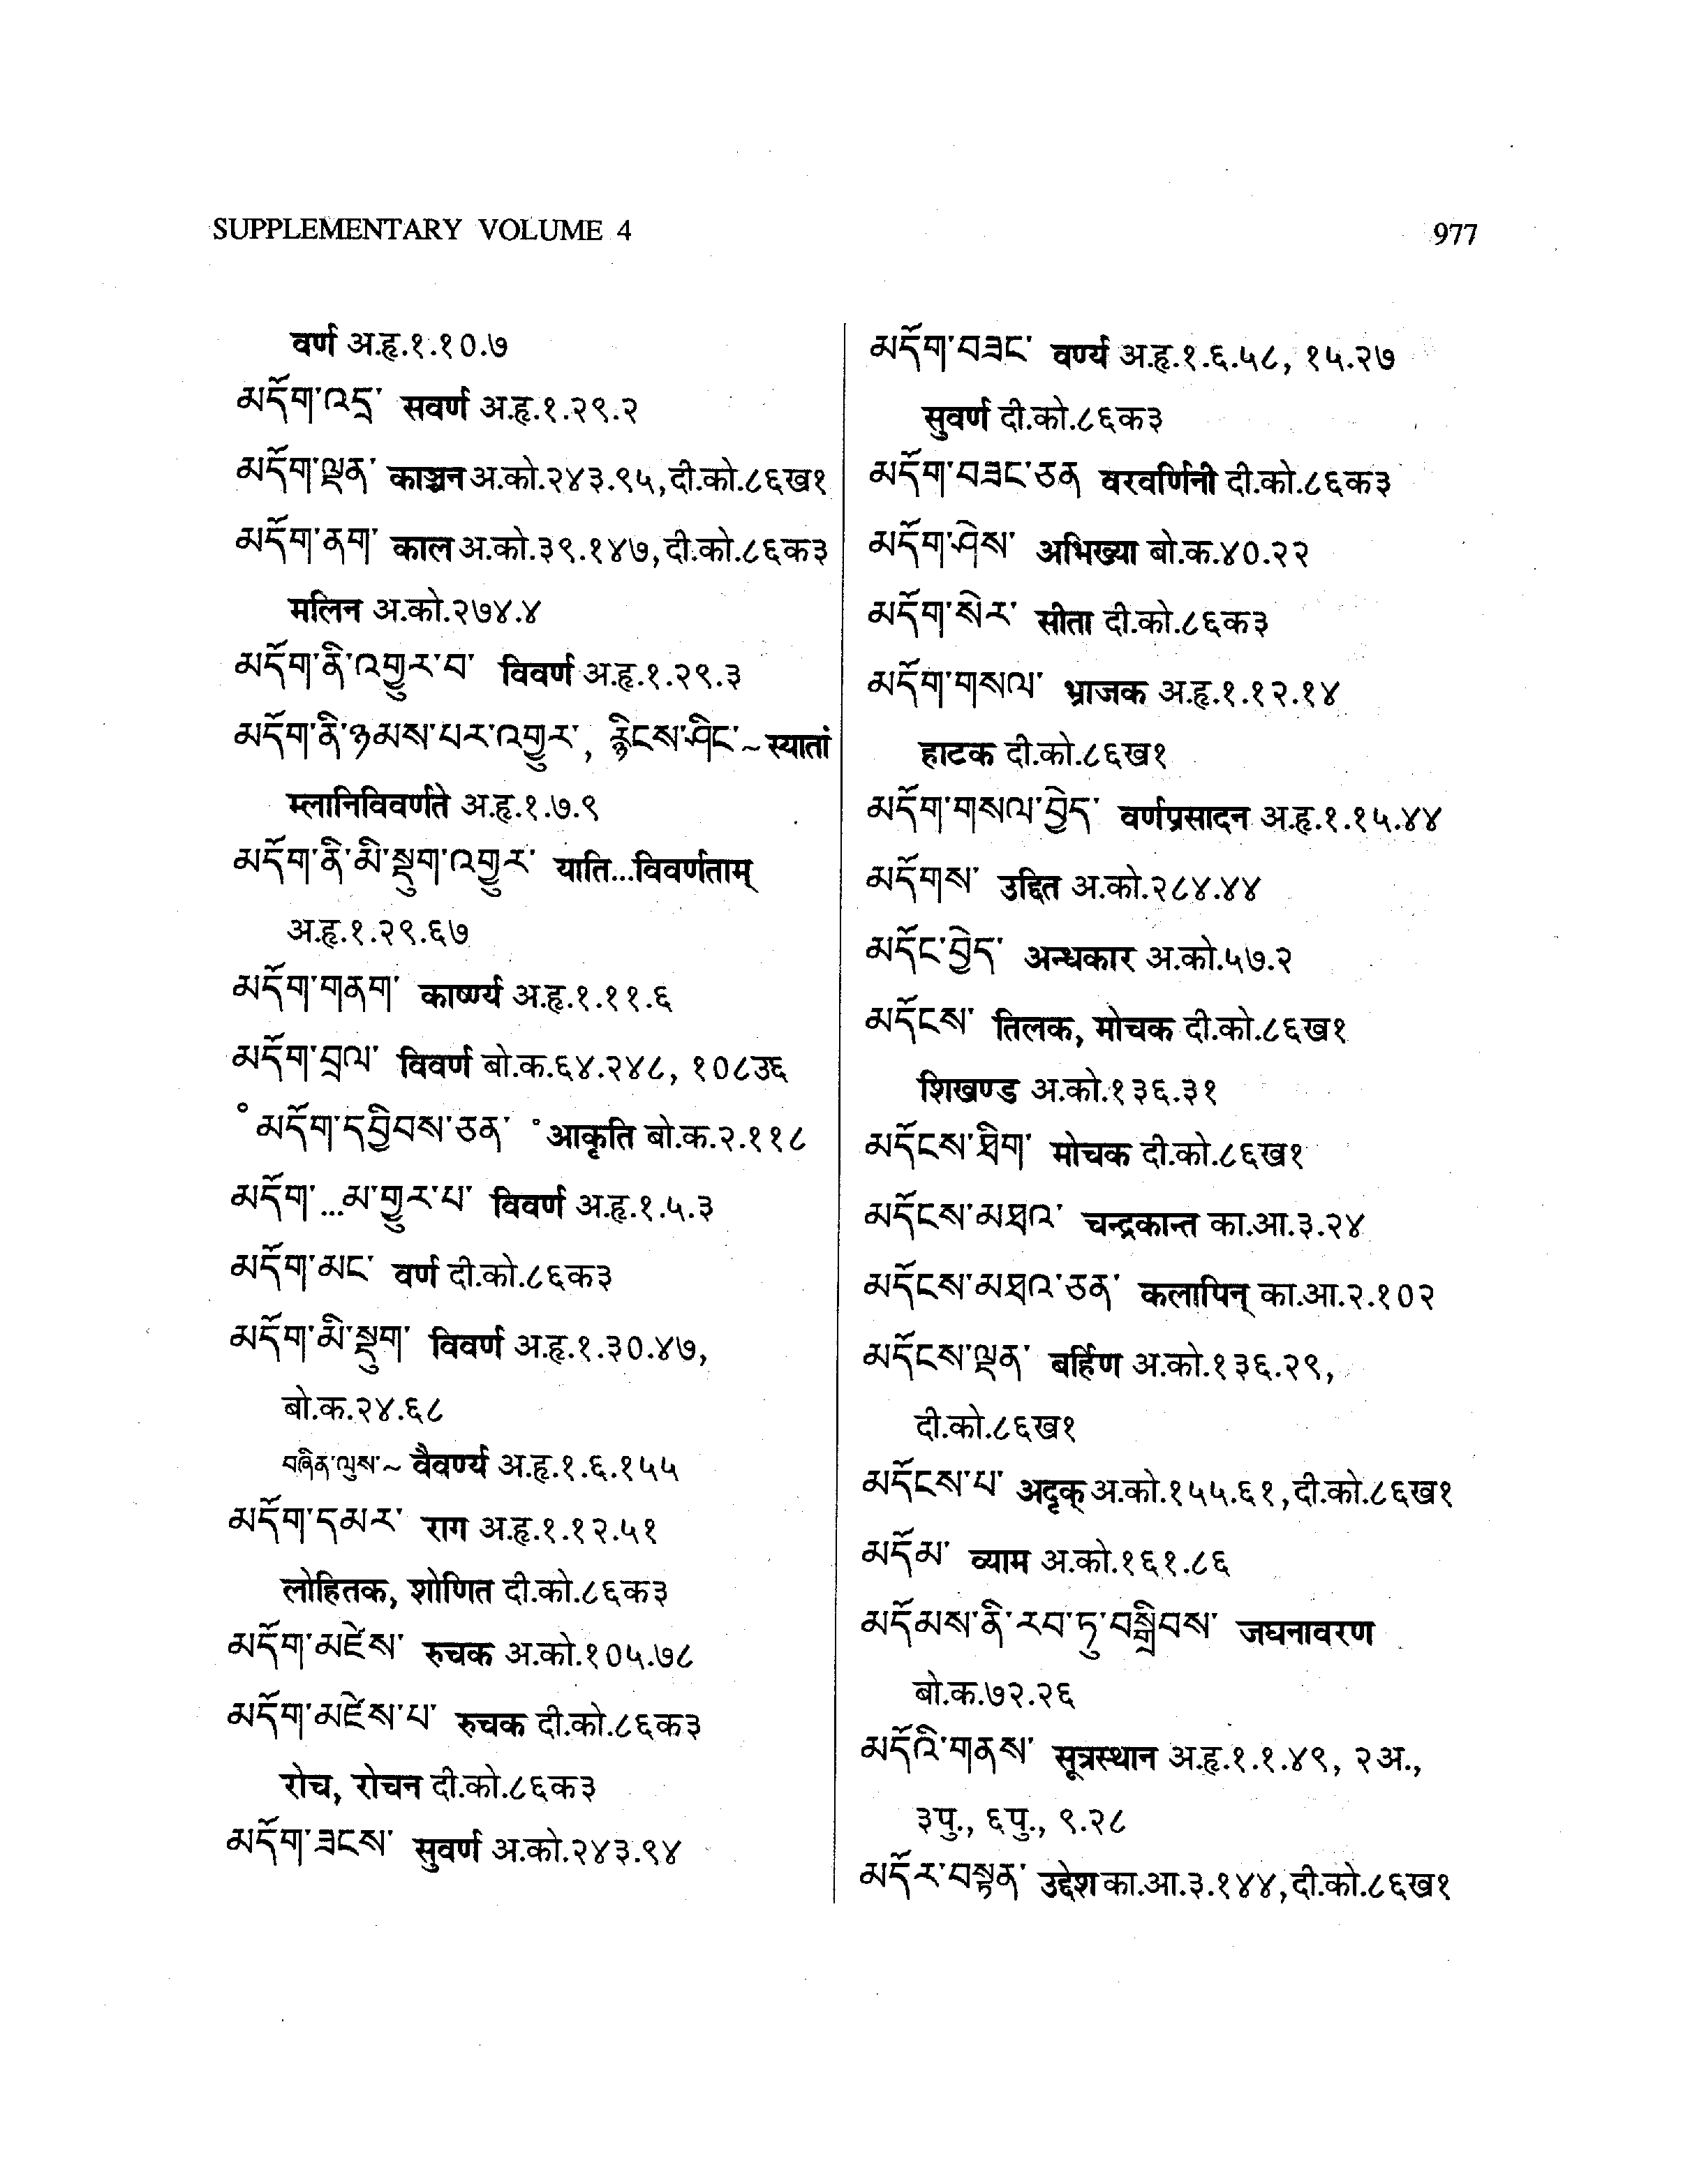 SUPPLEMENTARY VOLUME 4
977
वर्ण अ.हृ.१.१०.७
མདོག་འདྲ་ सवर्ण अ.हृ.१.२९.२
མདོག་ལྡན་ काञ्चन अ.को.२४३.९५, दी.को.८६ख१
མདོག་ནག་ काल अ.को.३९.१४७, दी.को.८६क३
मलिन अ.को.२७४.४
མདོག་ནི་འགྱུར་བ་ विवर्ण अ.हृ.१.२९.३
མདོག་ནི་ཉམས་པར་འགྱུར་, རྙིངས་ཤིང་~ स्यातां
म्लानिविवर्णते अ.हृ.१.७.९
མདོག་ནི་མི་སྡུག་འགྱུར་ याति...विवर्णताम्
अ.हृ.१.२९.६७
མདོག་གནག་ कार्ष्ण्य अ.हृ.१.११.६
མདོག་བྲལ་ विवर्ण बो.क.६४.२४८, १०८उ६
°མདོག་དབྱིབས་ཅན་ °आकृति बो.क.२.११८
མདོག་...མ་གྱུར་པ་ विवर्ण अ.हृ.१.५.३
མདོག་མང་ वर्ण दी.को.८६क३
མདོག་མི་སྡུག་ विवर्ण अ.हृ.१.३०.४७,
बो.क.२४.६८
བཞིན་ལུས་~ वैवर्ण्य अ.हृ.१.६.१५५
མདོག་དམར་ राग अ.हृ.१.१२.५१
लोहितक, शोणित दी.को.८६क३
མདོག་མཛེས་ रुचक अ.को.१०५.७८
མདོག་མཛེས་པ་ रुचक दी.को.८६क३
रोच, रोचन दी.को.८६क३
མདོག་ཟངས་ सुवर्ण अ.को.२४३.९४
མདོག་བཟང་ वर्ण्य अ.हृ.१.६.५८, १५.२७
सुवर्ण दी.को.८६क३
མདོག་བཟང་ཅན वरवर्णिनी दी.को.८६क३
མདོག་ཤེས་ अभिख्या बो.क.४०.२२
མདོག་སེར་ सीता दी.को.८६क३
མདོག་གསལ་ भ्राजक अ.हृ.१.१२.१४
हाटक दी.को.८६ख१
མདོག་གསལ་བྱེད་ वर्णप्रसादन अ.हृ.१.१५.४४
མདོགས་ उद्दित अ.को.२८४.४४
མདོང་བྱེད་ अन्धकार अ.को.५७.२
མདོངས་ तिलक, मोचक दी.को.८६ख१
शिखण्ड अ.को.१३६.३१
མདོངས་ཐིག་ मोचक दी.को.८६ख१
མདོངས་མཐའ་ चन्द्रकान्त का.आ.३.२४
མདོངས་མཐའ་ཅན་ कलापिन् का.आ.२.१०२
མདོངས་ལྡན་ बर्हिण अ.को.१३६.२९,
दी.को.८६ख१
མདོངས་པ་ अदृक् अ.को.१५५.६१, दी.को.८६ख१
མདོམ་ व्याम अ.को.१६१.८६
མདོམས་ནི་རབ་ཏུ་བསྒྲིབས་ जघनावरण
बो.क.७२.२६
མདོའི་གནས་ सूत्रस्थान अ.हृ.१.१.४९, २अ.,
३पु., ६पु., ९.२८
མདོར་བསྟན་ उद्देश का.आ.३.१४४, दी.को.८६ख१